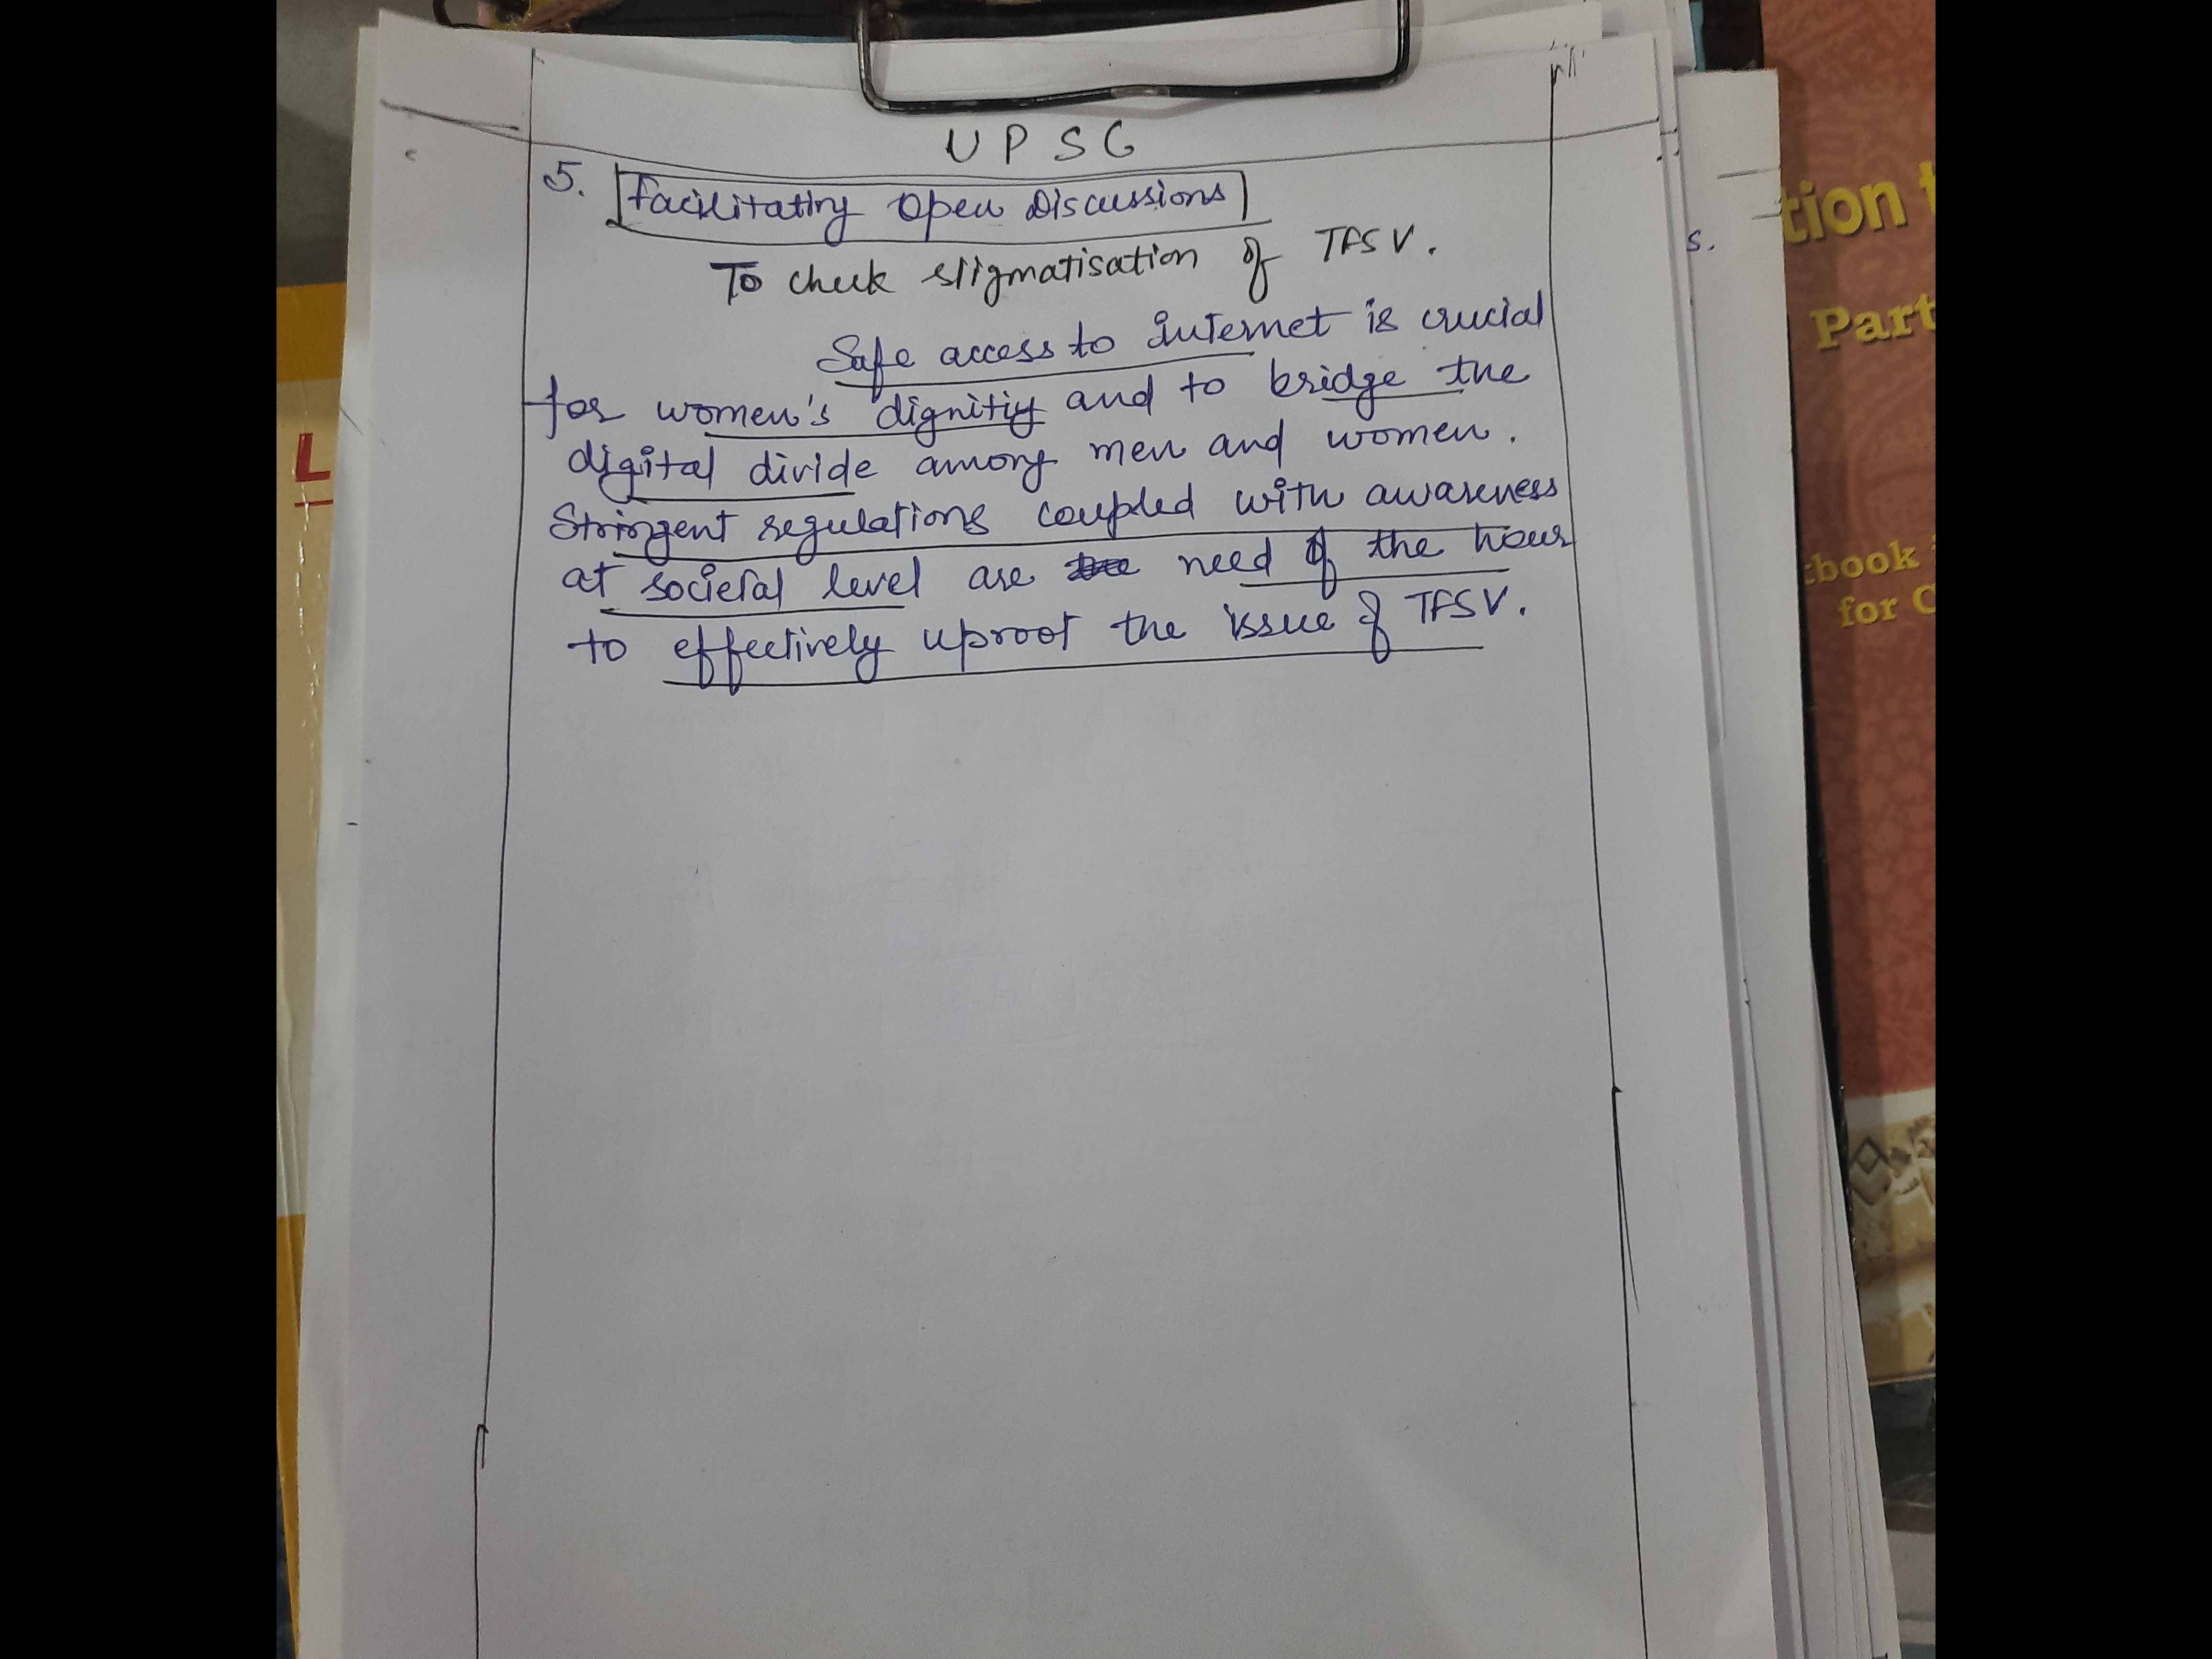 UPSC
5. Facilitating Open Discussions
To check stigmatisation of TFSV.
Safe access to internet is crucial
for women's dignitiy and to bridge the
digital divide among men and women.
Stringent regulations coupled with awareness
at societal level are need of the hour
to effectively uproot the issue of TFSV.
s.
L
tion
Part
book
for C